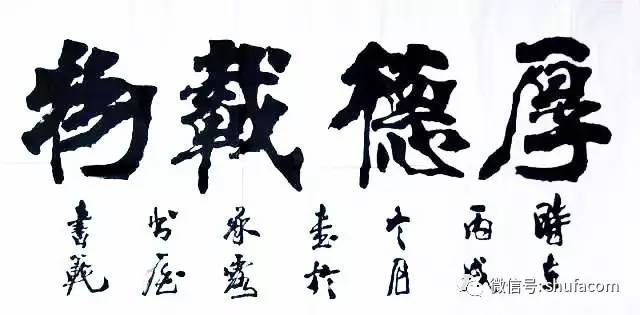 厚德載物
時在
丙戌
冬月
書於
承
书屋
書範
微信号: shufacom